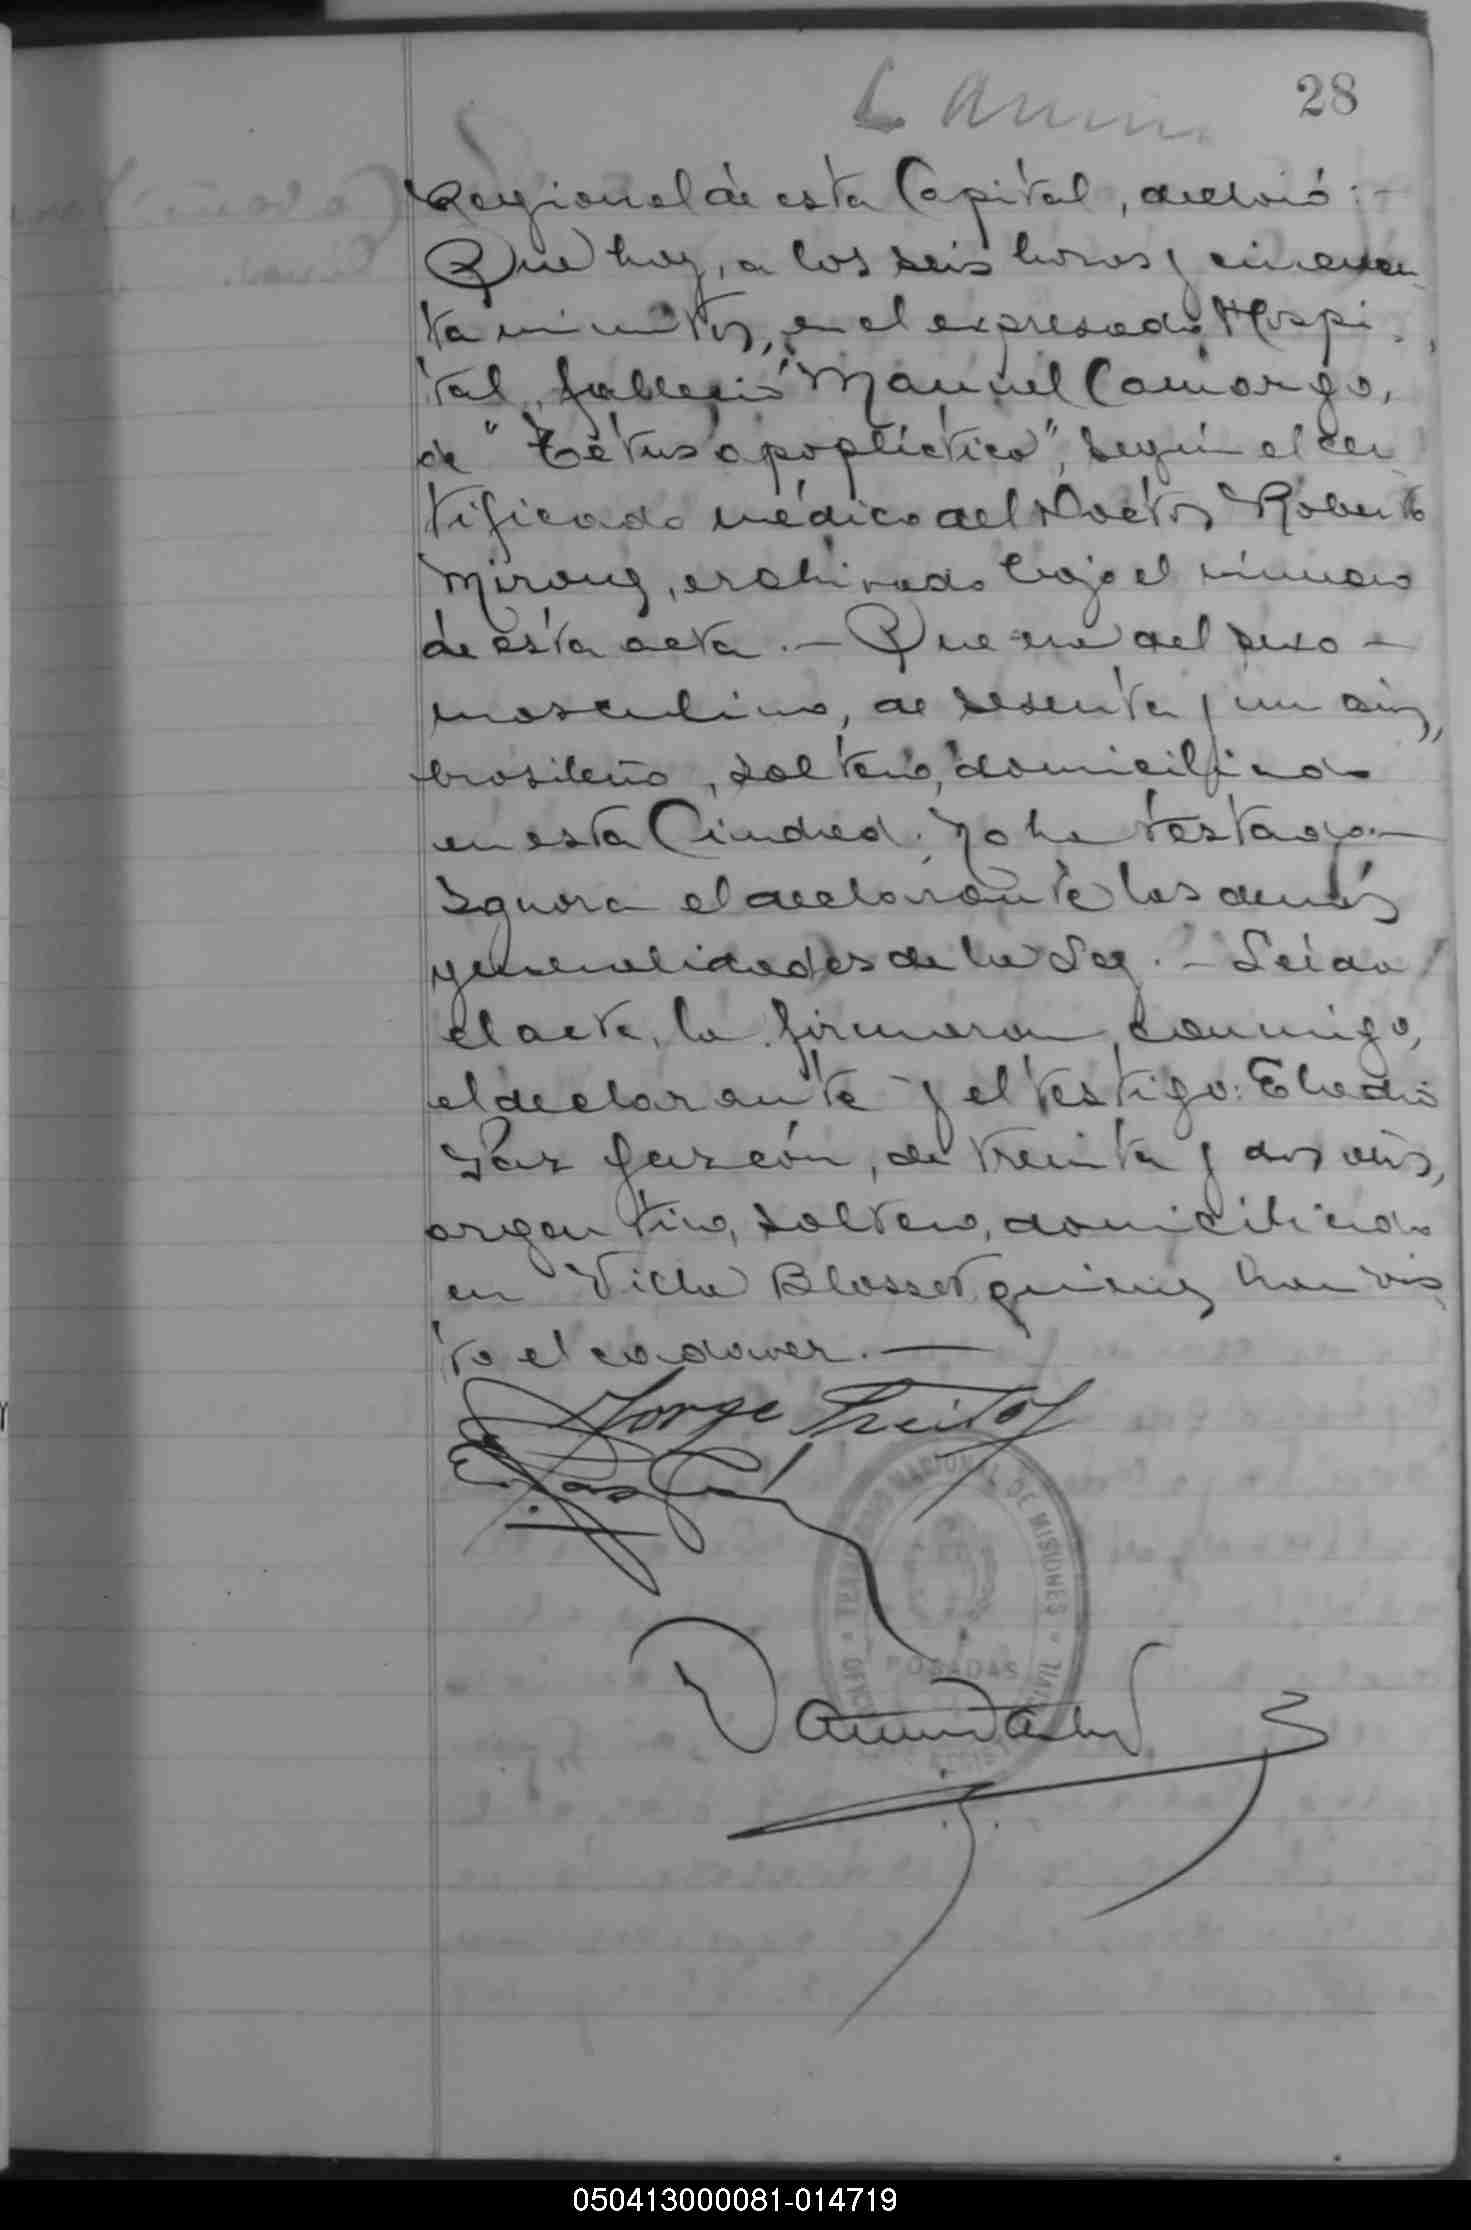 28
Regional de esta Capital, declaró:-
Que hoy, a las seis horas y cincuen-
ta minutos, en el expresado Hospi-
tal, falleció Manuel Camargo,
de "Ictus apopléctico", según el cer
tificado médico del Doctor Roberto
archivado bajo el número
de esta acta.- Que era del sexo -
masculino, de sesenta y un años,
brasileño, soltero, domiciliado
en esta Ciudad. No ha testado.-
Ignora el declarante las demás
generalidades de la Ley.- Leída
el acta, la firmaron conmigo,
el declarante y el testigo: Eladio
Paz Garzón, de treinta y dos años,
argentino, soltero, domiciliado
en Villa Blosset, quienes han vis
to el cadaver.-
Jorge Freitas
E. Paz
TERRITORIO NACIONAL DE MISIONES
POSADAS
050413000081-014719